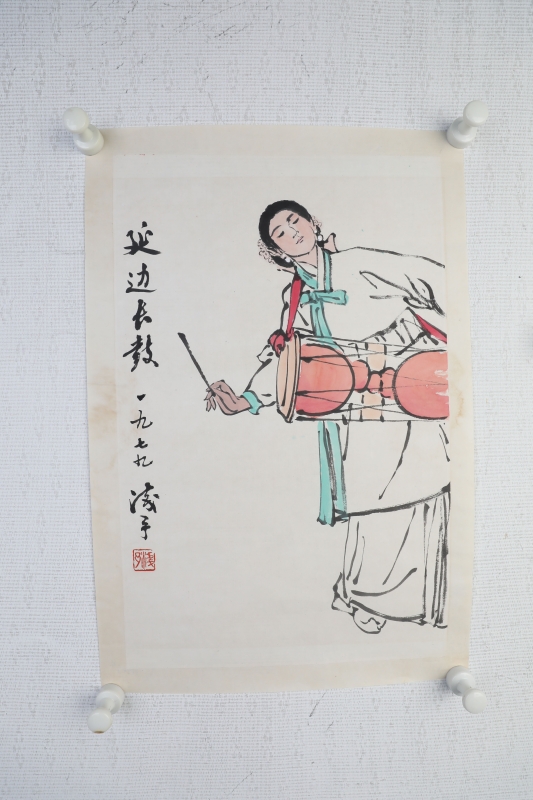 延边长鼓 一九七九 浅予